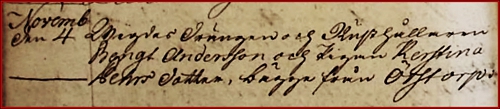 Novemb
den 4 Wigdes Drängen och Rusthållaren
Bengt Anderson och Pigan Kerstina
Pehrs Dotter, bägge från Ofstorp